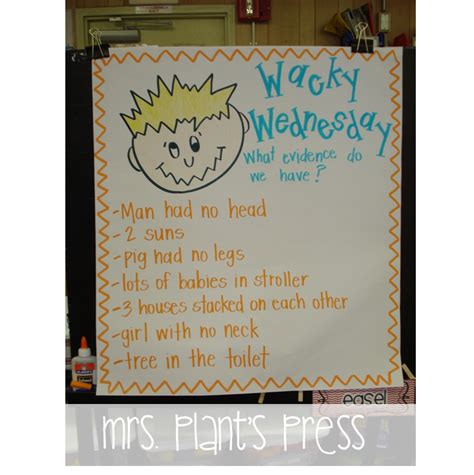 Wacky
Wednesday
What evidence do
we have?
-Man had no head
-2 suns
-pig had no legs
-lots of babies in stroller
-3 houses stacked on each other
-girl with no neck
-tree in the toilet
easel
mrs. Plant's Press